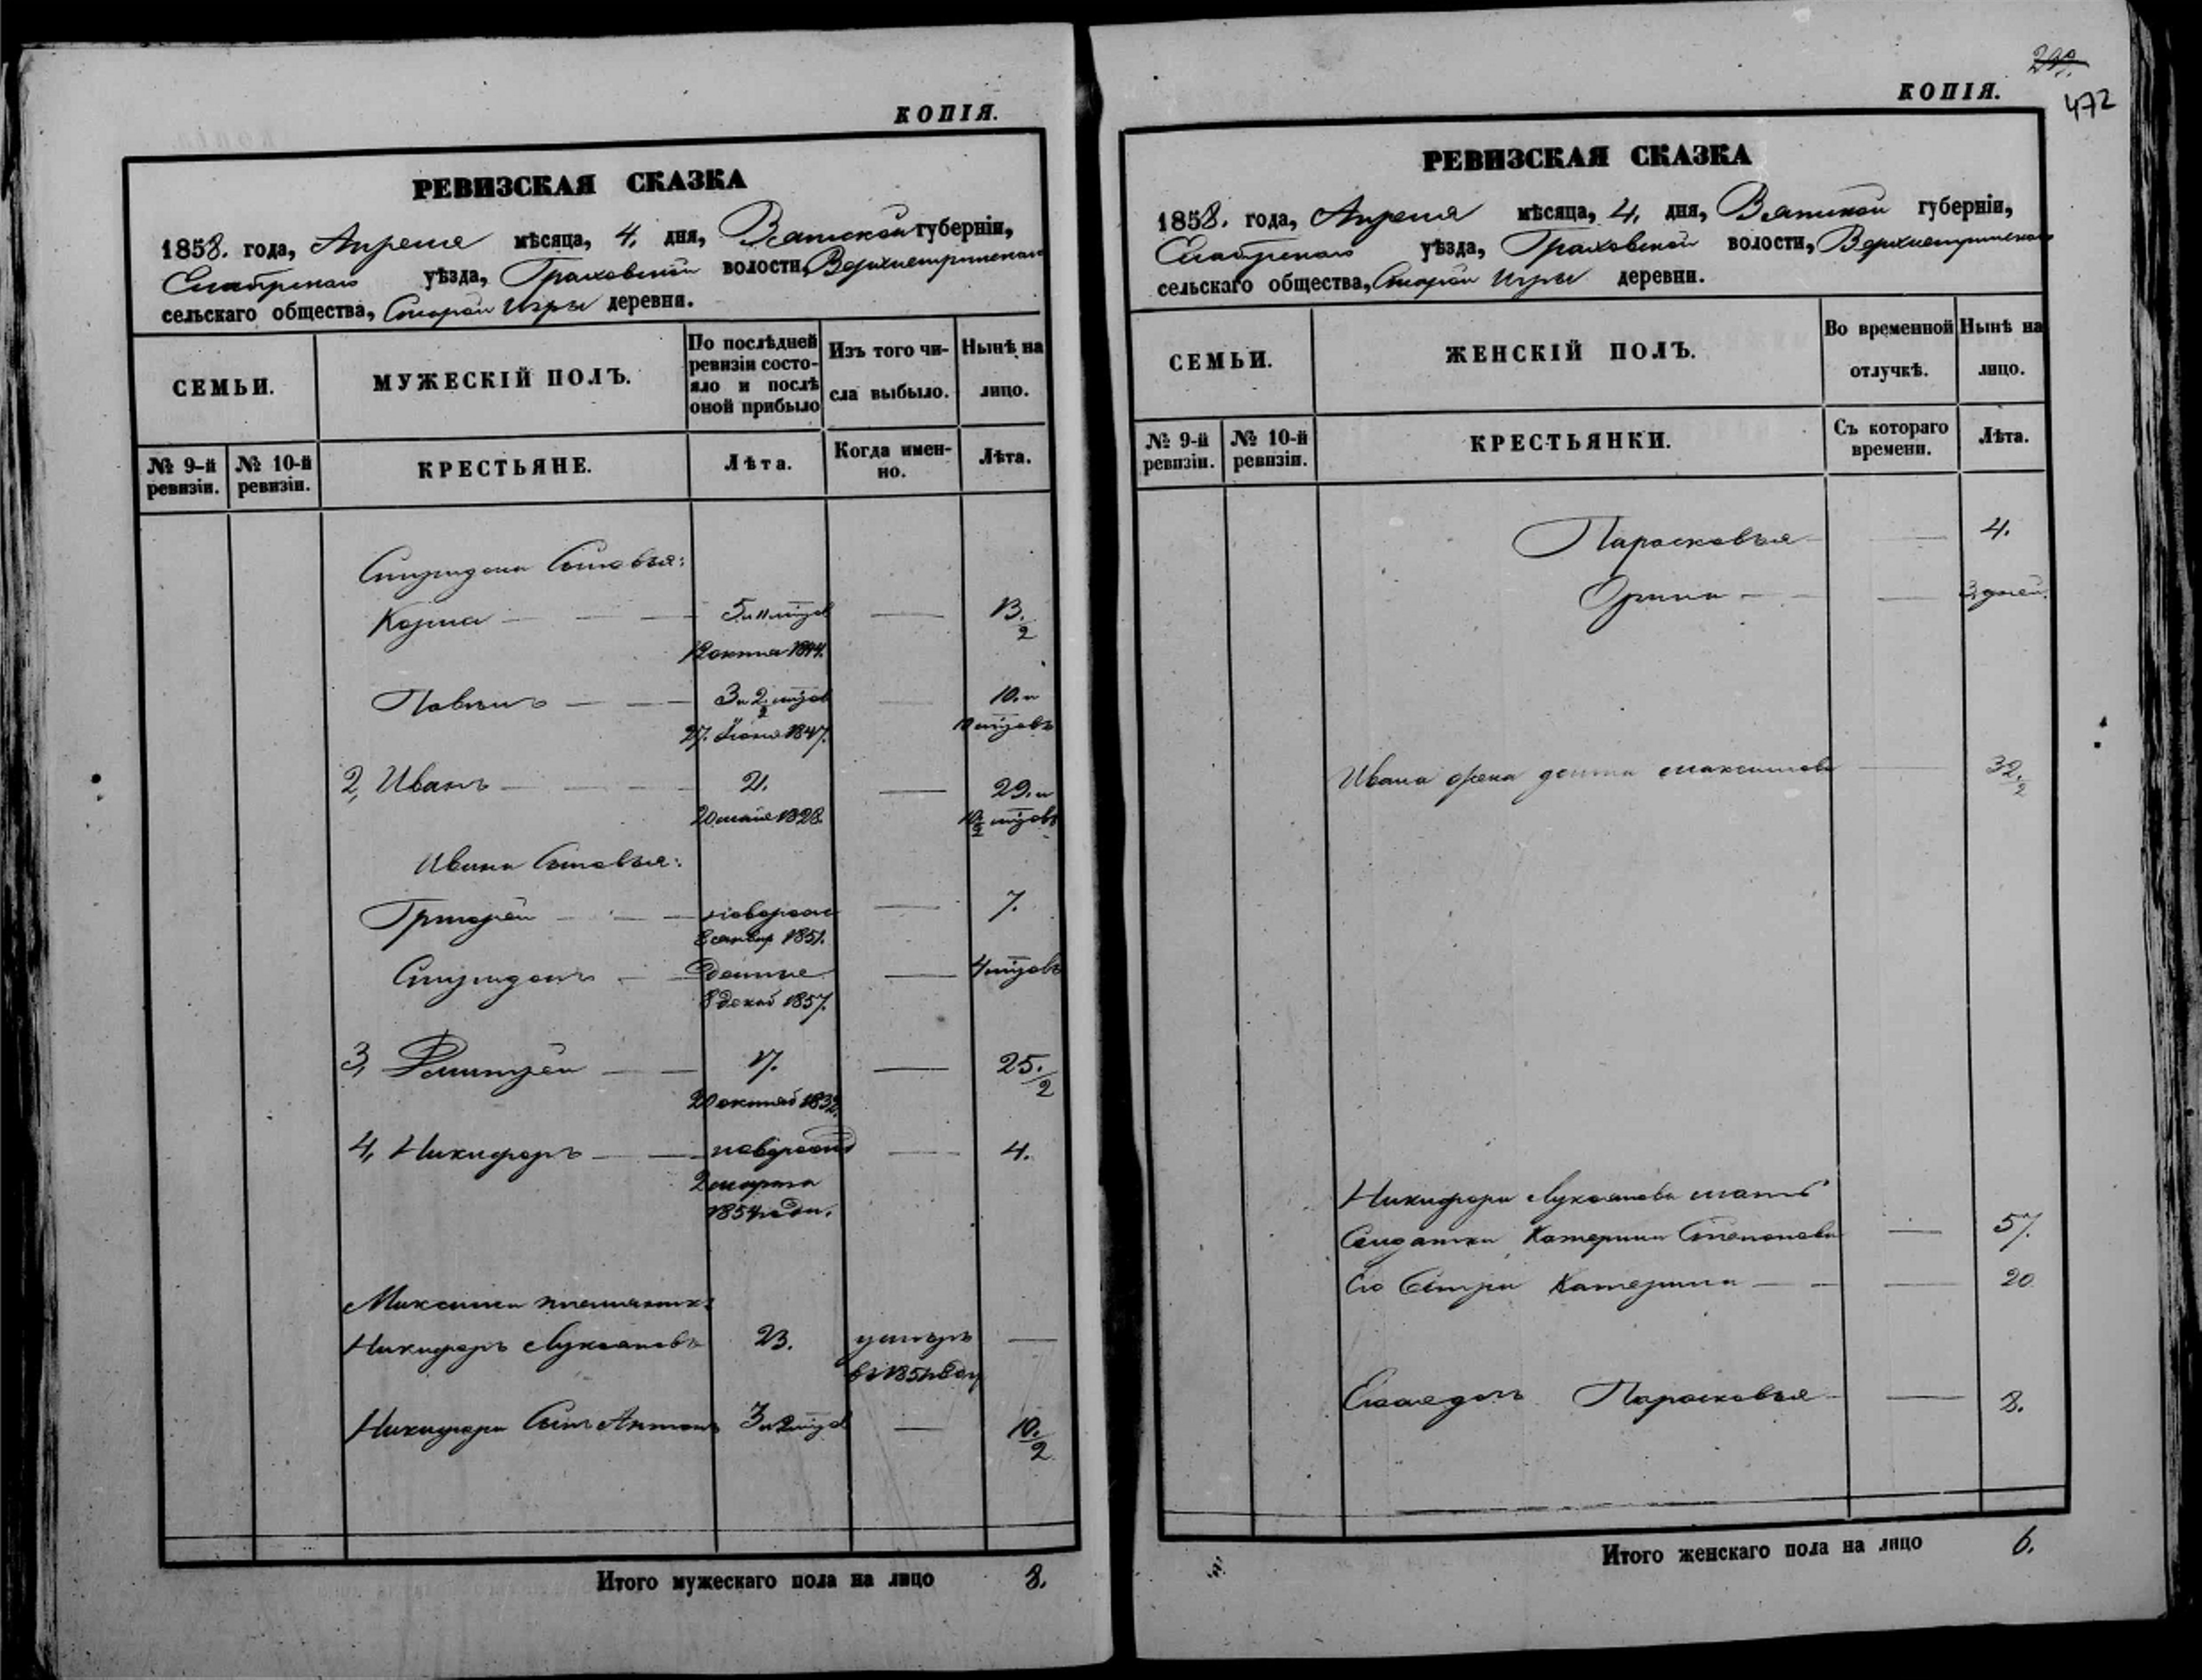 КОПІЯ.
РЕВИЗСКАЯ СКАЗКА
1858. года, Апреля мѣсяца, 4. дня, Вятской губерніи,
Елабужскаго уѣзда, Граховской волости,
сельскаго общества, Старой Игры деревни.
СЕМЬИ.
МУЖЕСКІЙ ПОЛЪ.
По послѣдней ревизіи состояло и послѣ оной прибыло
Изъ того числа выбыло.
Нынѣ на лицо.
№ 9-й ревизіи.
№ 10-й ревизіи.
КРЕСТЬЯНЕ.
Лѣта.
Когда именно.
Лѣта.
Спиридона Сыновья:
Козма 5 и 11 мцов — 13 1/2
1844.
Павелъ 3 и 2 1/2 мцов — 10. и
27. Июня 1847. 10 мцовъ
2, Иванъ 21. — 29. и
20 мая 1828. 10 1/2 мцовъ
Ивана Сыновья:
Григорей новорож — 7.
1851.
Спиридонъ — 4 мцовъ
8 декаб 1857.
3, Дмитрей 17. — 25. 1/2
20 октяб 1832.
4, Никифоръ новорожд — 4.
2 марта
1854 года.
Максима племянник:
Никифоръ Лукояновъ 23. умеръ —
въ 1854 году
Никифора Сынъ Антонъ 3 и 2 мцов — 10. 1/2
Итого мужескаго пола на лицо 8.
КОПІЯ.
472
РЕВИЗСКАЯ СКАЗКА
1858. года, Апреля мѣсяца, 4, дня, Вятской губерніи,
Елабужскаго уѣзда, Граховской волости,
сельскаго общества, Старой Игры деревни.
СЕМЬИ.
ЖЕНСКІЙ ПОЛЪ.
Во временной отлучкѣ.
Нынѣ на лицо.
№ 9-й ревизіи.
№ 10-й ревизіи.
КРЕСТЬЯНКИ.
Съ котораго времени.
Лѣта.
Парасковья — 4.
Орина — 3. дней.
Ивана жена Максимова — 32. 1/2
Никифора Лукоянова мать
Солдатка Катерина Степанова — 57.
Его Сестра Катерина — 20
Парасковья — 8.
Итого женскаго пола на лицо 6.